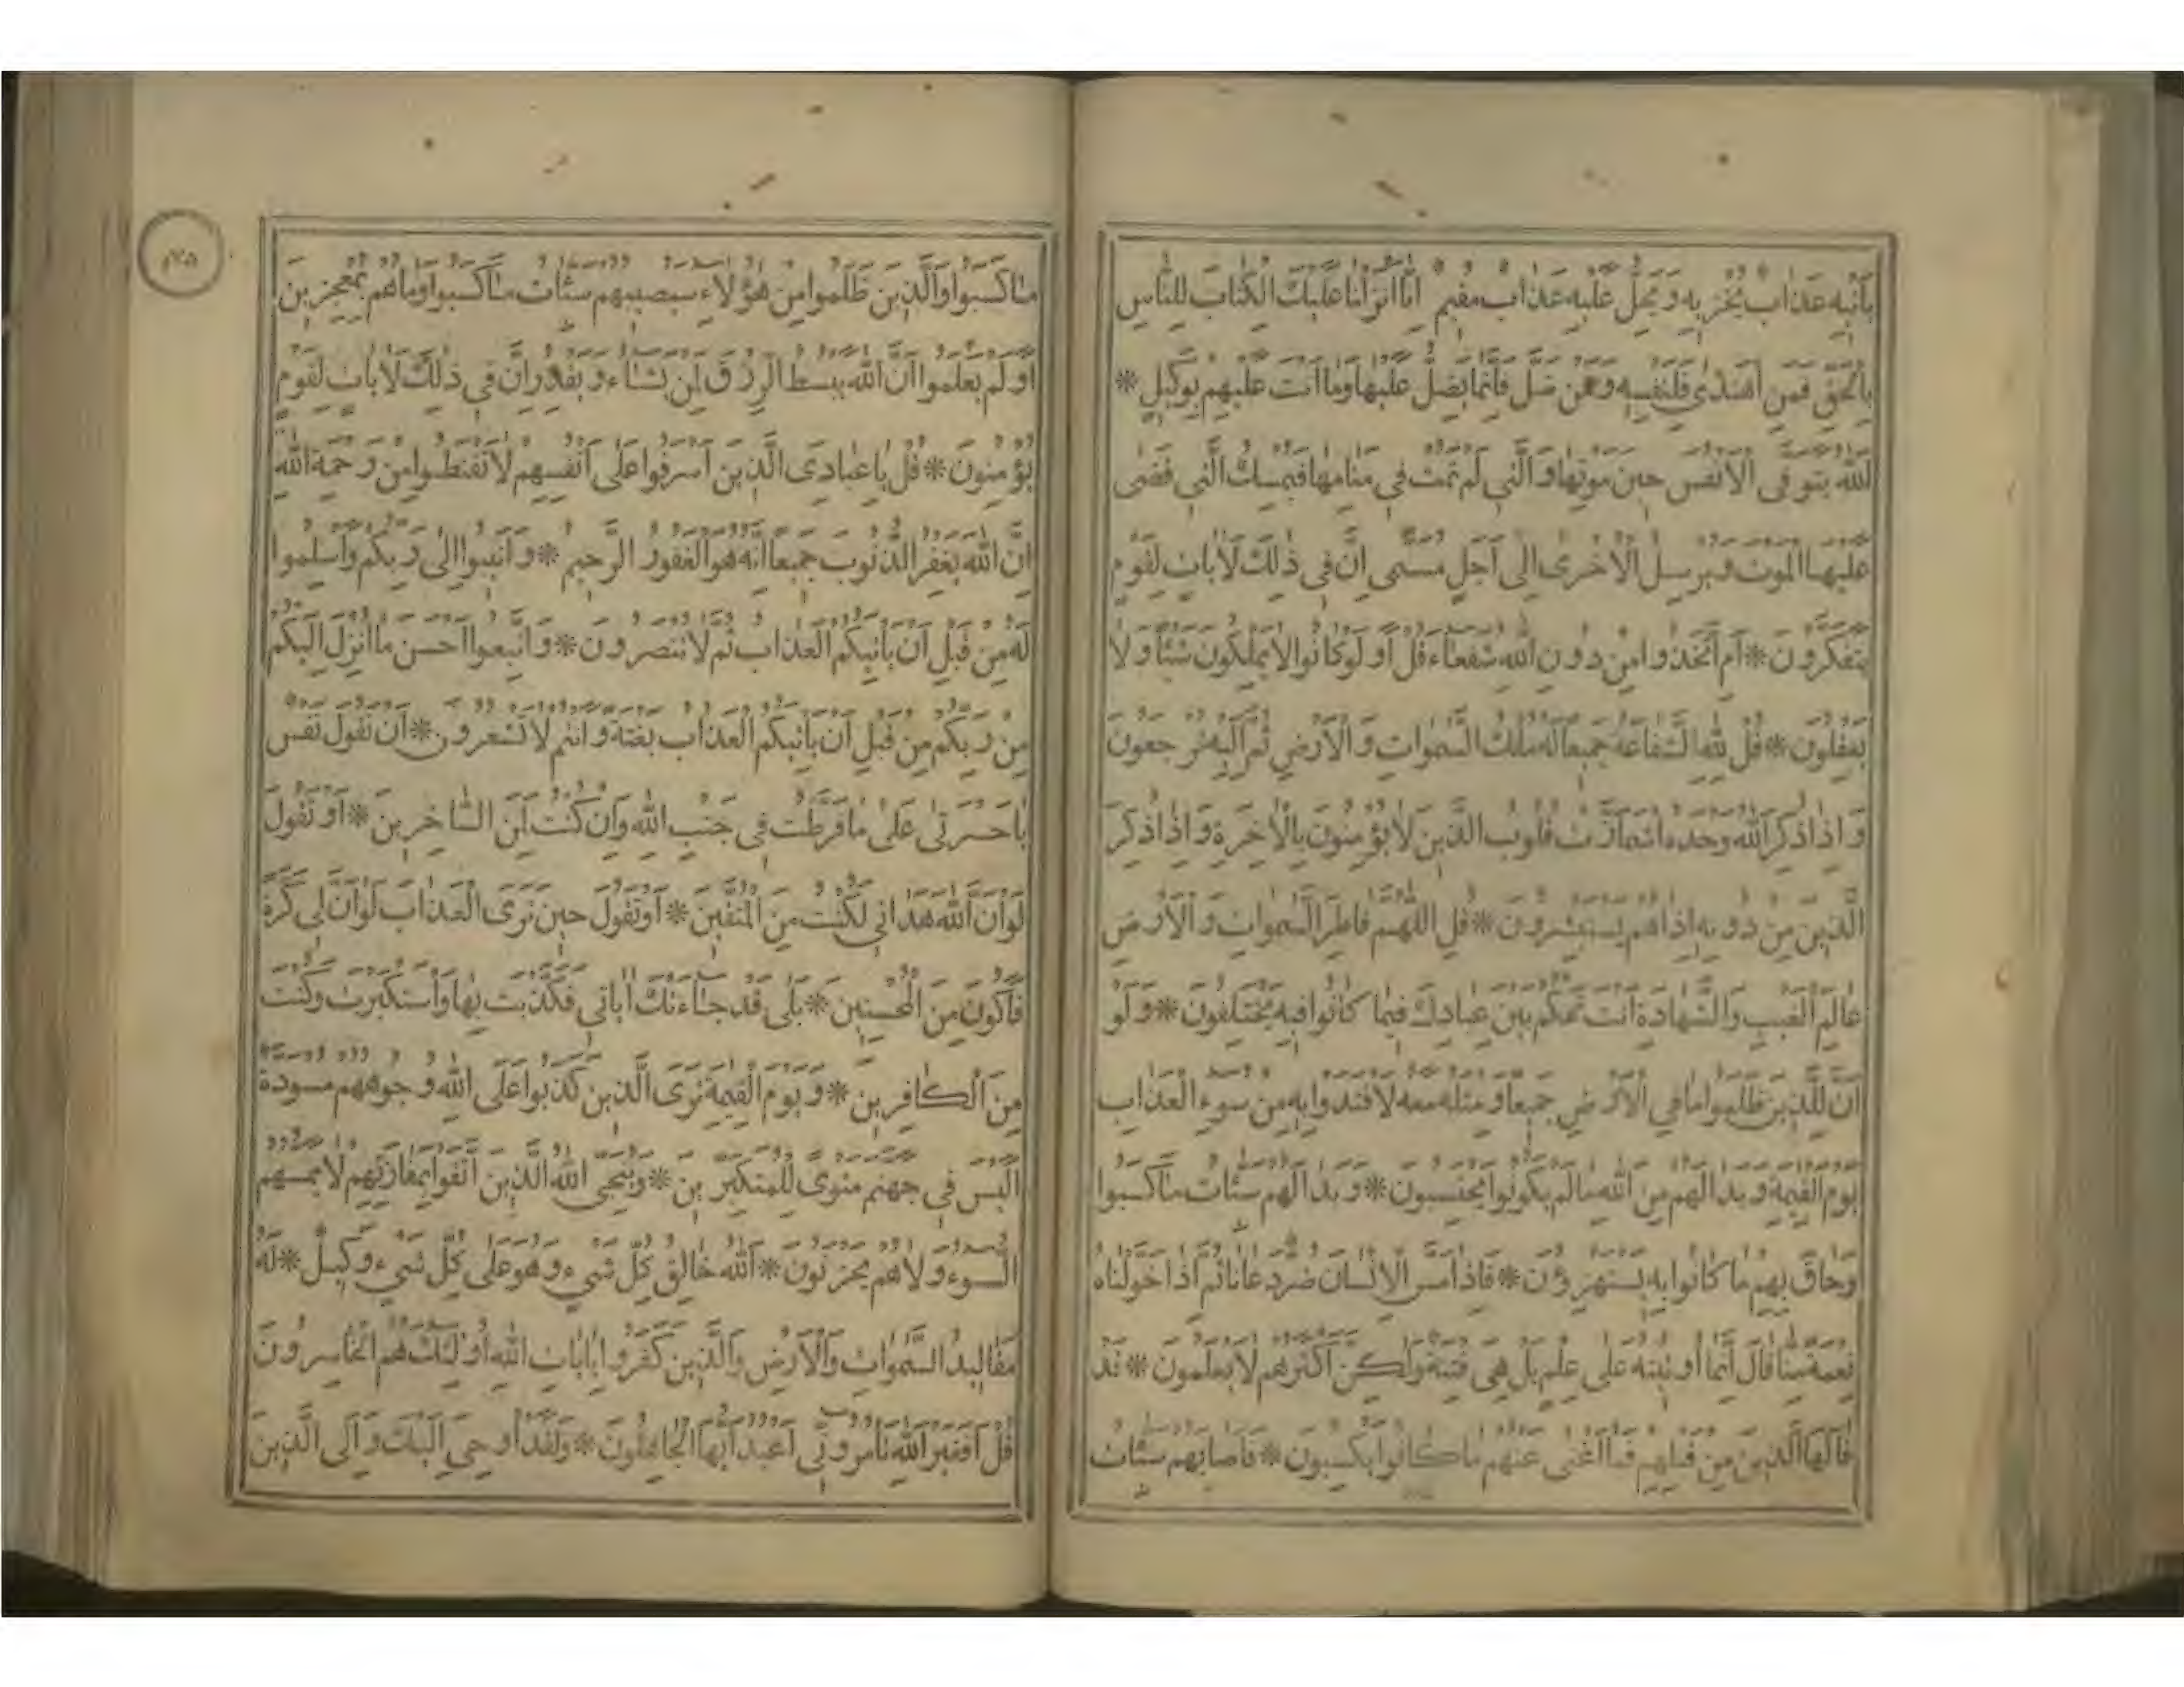 يَأْتِيهِ عَذَابٌ يُخْزِيهِ وَيَحِلُّ عَلَيْهِ عَذَابٌ مُقِيمٌ اِنَّا اَنْزَلْنَا عَلَيْكَ الْكِتَابَ لِلنَّاسِ
بِالْحَقِّ فَمَنِ اهْتَدٰى فَلِنَفْسِهِ وَمَنْ ضَلَّ فَاِنَّمَا يَضِلُّ عَلَيْهَا وَمَا اَنْتَ عَلَيْهِمْ بِوَكِيلٍ *
اَللّٰهُ يَتَوَفَّى الْاَنْفُسَ حِينَ مَوْتِهَا وَالَّتِي لَمْ تَمُتْ فِي مَنَامِهَا فَيُمْسِكُ الَّتِي قَضٰى
عَلَيْهَا الْمَوْتَ وَيُرْسِلُ الْاُخْرٰى اِلٰى اَجَلٍ مُسَمًّى اِنَّ فِي ذٰلِكَ لَاٰيَاتٍ لِقَوْمٍ
يَتَفَكَّرُونَ * اَمِ اتَّخَذُوا مِنْ دُونِ اللّٰهِ شُفَعَاءَ قُلْ اَوَلَوْ كَانُوا لَا يَمْلِكُونَ شَيْئًا وَلَا
يَعْقِلُونَ * قُلْ لِلّٰهِ الشَّفَاعَةُ جَمِيعًا لَهُ مُلْكُ السَّمٰوَاتِ وَالْاَرْضِ ثُمَّ اِلَيْهِ تُرْجَعُونَ
وَاِذَا ذُكِرَ اللّٰهُ وَحْدَهُ اشْمَاَزَّتْ قُلُوبُ الَّذِينَ لَا يُؤْمِنُونَ بِالْاٰخِرَةِ وَاِذَا ذُكِرَ
الَّذِينَ مِنْ دُونِهِ اِذَا هُمْ يَسْتَبْشِرُونَ * قُلِ اللّٰهُمَّ فَاطِرَ السَّمٰوَاتِ وَالْاَرْضِ
عَالِمَ الْغَيْبِ وَالشَّهَادَةِ اَنْتَ تَحْكُمُ بَيْنَ عِبَادِكَ فِيمَا كَانُوا فِيهِ يَخْتَلِفُونَ * وَلَوْ
اَنَّ لِلَّذِينَ ظَلَمُوا مَا فِي الْاَرْضِ جَمِيعًا وَمِثْلَهُ مَعَهُ لَافْتَدَوْا بِهِ مِنْ سُوءِ الْعَذَابِ
يَوْمَ الْقِيٰمَةِ وَبَدَا لَهُمْ مِنَ اللّٰهِ مَا لَمْ يَكُونُوا يَحْتَسِبُونَ * وَبَدَا لَهُمْ سَيِّئَاتُ مَا كَسَبُوا
وَحَاقَ بِهِمْ مَا كَانُوا بِهِ يَسْتَهْزِؤُنَ * فَاِذَا مَسَّ الْاِنْسَانَ ضُرٌّ دَعَانَا ثُمَّ اِذَا خَوَّلْنَاهُ
نِعْمَةً مِنَّا قَالَ اِنَّمَا اُوتِيتُهُ عَلٰى عِلْمٍ بَلْ هِيَ فِتْنَةٌ وَلٰكِنَّ اَكْثَرَهُمْ لَا يَعْلَمُونَ * قَدْ
قَالَهَا الَّذِينَ مِنْ قَبْلِهِمْ فَمَا اَغْنٰى عَنْهُمْ مَا كَانُوا يَكْسِبُونَ * فَاَصَابَهُمْ سَيِّئَاتُ
مَا كَسَبُوا وَالَّذِينَ ظَلَمُوا مِنْ هٰؤُلَاءِ سَيُصِيبُهُمْ سَيِّئَاتُ مَا كَسَبُوا وَمَا هُمْ بِمُعْجِزِينَ
اَوَلَمْ يَعْلَمُوا اَنَّ اللّٰهَ يَبْسُطُ الرِّزْقَ لِمَنْ يَشَاءُ وَيَقْدِرُ اِنَّ فِي ذٰلِكَ لَاٰيَاتٍ لِقَوْمٍ
يُؤْمِنُونَ * قُلْ يَا عِبَادِيَ الَّذِينَ اَسْرَفُوا عَلٰى اَنْفُسِهِمْ لَا تَقْنَطُوا مِنْ رَحْمَةِ اللّٰهِ
اِنَّ اللّٰهَ يَغْفِرُ الذُّنُوبَ جَمِيعًا اِنَّهُ هُوَ الْغَفُورُ الرَّحِيمُ * وَاَنِيبُوا اِلٰى رَبِّكُمْ وَاَسْلِمُوا
لَهُ مِنْ قَبْلِ اَنْ يَأْتِيَكُمُ الْعَذَابُ ثُمَّ لَا تُنْصَرُونَ * وَاتَّبِعُوا اَحْسَنَ مَا اُنْزِلَ اِلَيْكُمْ
مِنْ رَبِّكُمْ مِنْ قَبْلِ اَنْ يَأْتِيَكُمُ الْعَذَابُ بَغْتَةً وَاَنْتُمْ لَا تَشْعُرُونَ * اَنْ تَقُولَ نَفْسٌ
يَا حَسْرَتٰى عَلٰى مَا فَرَّطْتُ فِي جَنْبِ اللّٰهِ وَاِنْ كُنْتُ لَمِنَ السَّاخِرِينَ * اَوْ تَقُولَ
لَوْ اَنَّ اللّٰهَ هَدَانِي لَكُنْتُ مِنَ الْمُتَّقِينَ * اَوْ تَقُولَ حِينَ تَرَى الْعَذَابَ لَوْ اَنَّ لِي كَرَّةً
فَاَكُونَ مِنَ الْمُحْسِنِينَ * بَلٰى قَدْ جَاءَتْكَ اٰيَاتِي فَكَذَّبْتَ بِهَا وَاسْتَكْبَرْتَ وَكُنْتَ
مِنَ الْكَافِرِينَ * وَيَوْمَ الْقِيٰمَةِ تَرَى الَّذِينَ كَذَبُوا عَلَى اللّٰهِ وُجُوهُهُمْ مُسْوَدَّةٌ
اَلَيْسَ فِي جَهَنَّمَ مَثْوًى لِلْمُتَكَبِّرِينَ * وَيُنَجِّي اللّٰهُ الَّذِينَ اتَّقَوْا بِمَفَازَتِهِمْ لَا يَمَسُّهُمُ
السُّوءُ وَلَا هُمْ يَحْزَنُونَ * اَللّٰهُ خَالِقُ كُلِّ شَيْءٍ وَهُوَ عَلٰى كُلِّ شَيْءٍ وَكِيلٌ * لَهُ
مَقَالِيدُ السَّمٰوَاتِ وَالْاَرْضِ وَالَّذِينَ كَفَرُوا بِاٰيَاتِ اللّٰهِ اُولٰئِكَ هُمُ الْخَاسِرُونَ
قُلْ اَفَغَيْرَ اللّٰهِ تَأْمُرُونِّي اَعْبُدُ اَيُّهَا الْجَاهِلُونَ * وَلَقَدْ اُوحِيَ اِلَيْكَ وَاِلَى الَّذِينَ